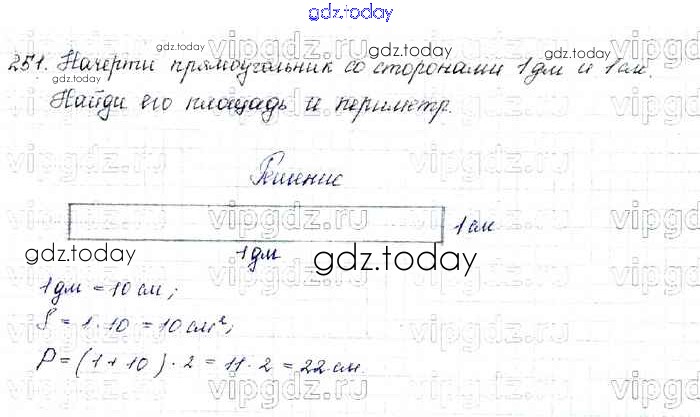 gdz.today
251. Начерти прямоугольник со сторонами 1 дм и 1 см.
Найди его площадь и периметр.
Решение
1 см
1 дм
gdz.today
gdz.today
gdz.today
gdz.today
1 дм = 10 см;
S = 1 · 10 = 10 см²;
P = (1 + 10) · 2 = 11 · 2 = 22 см.
vipgdz.ru